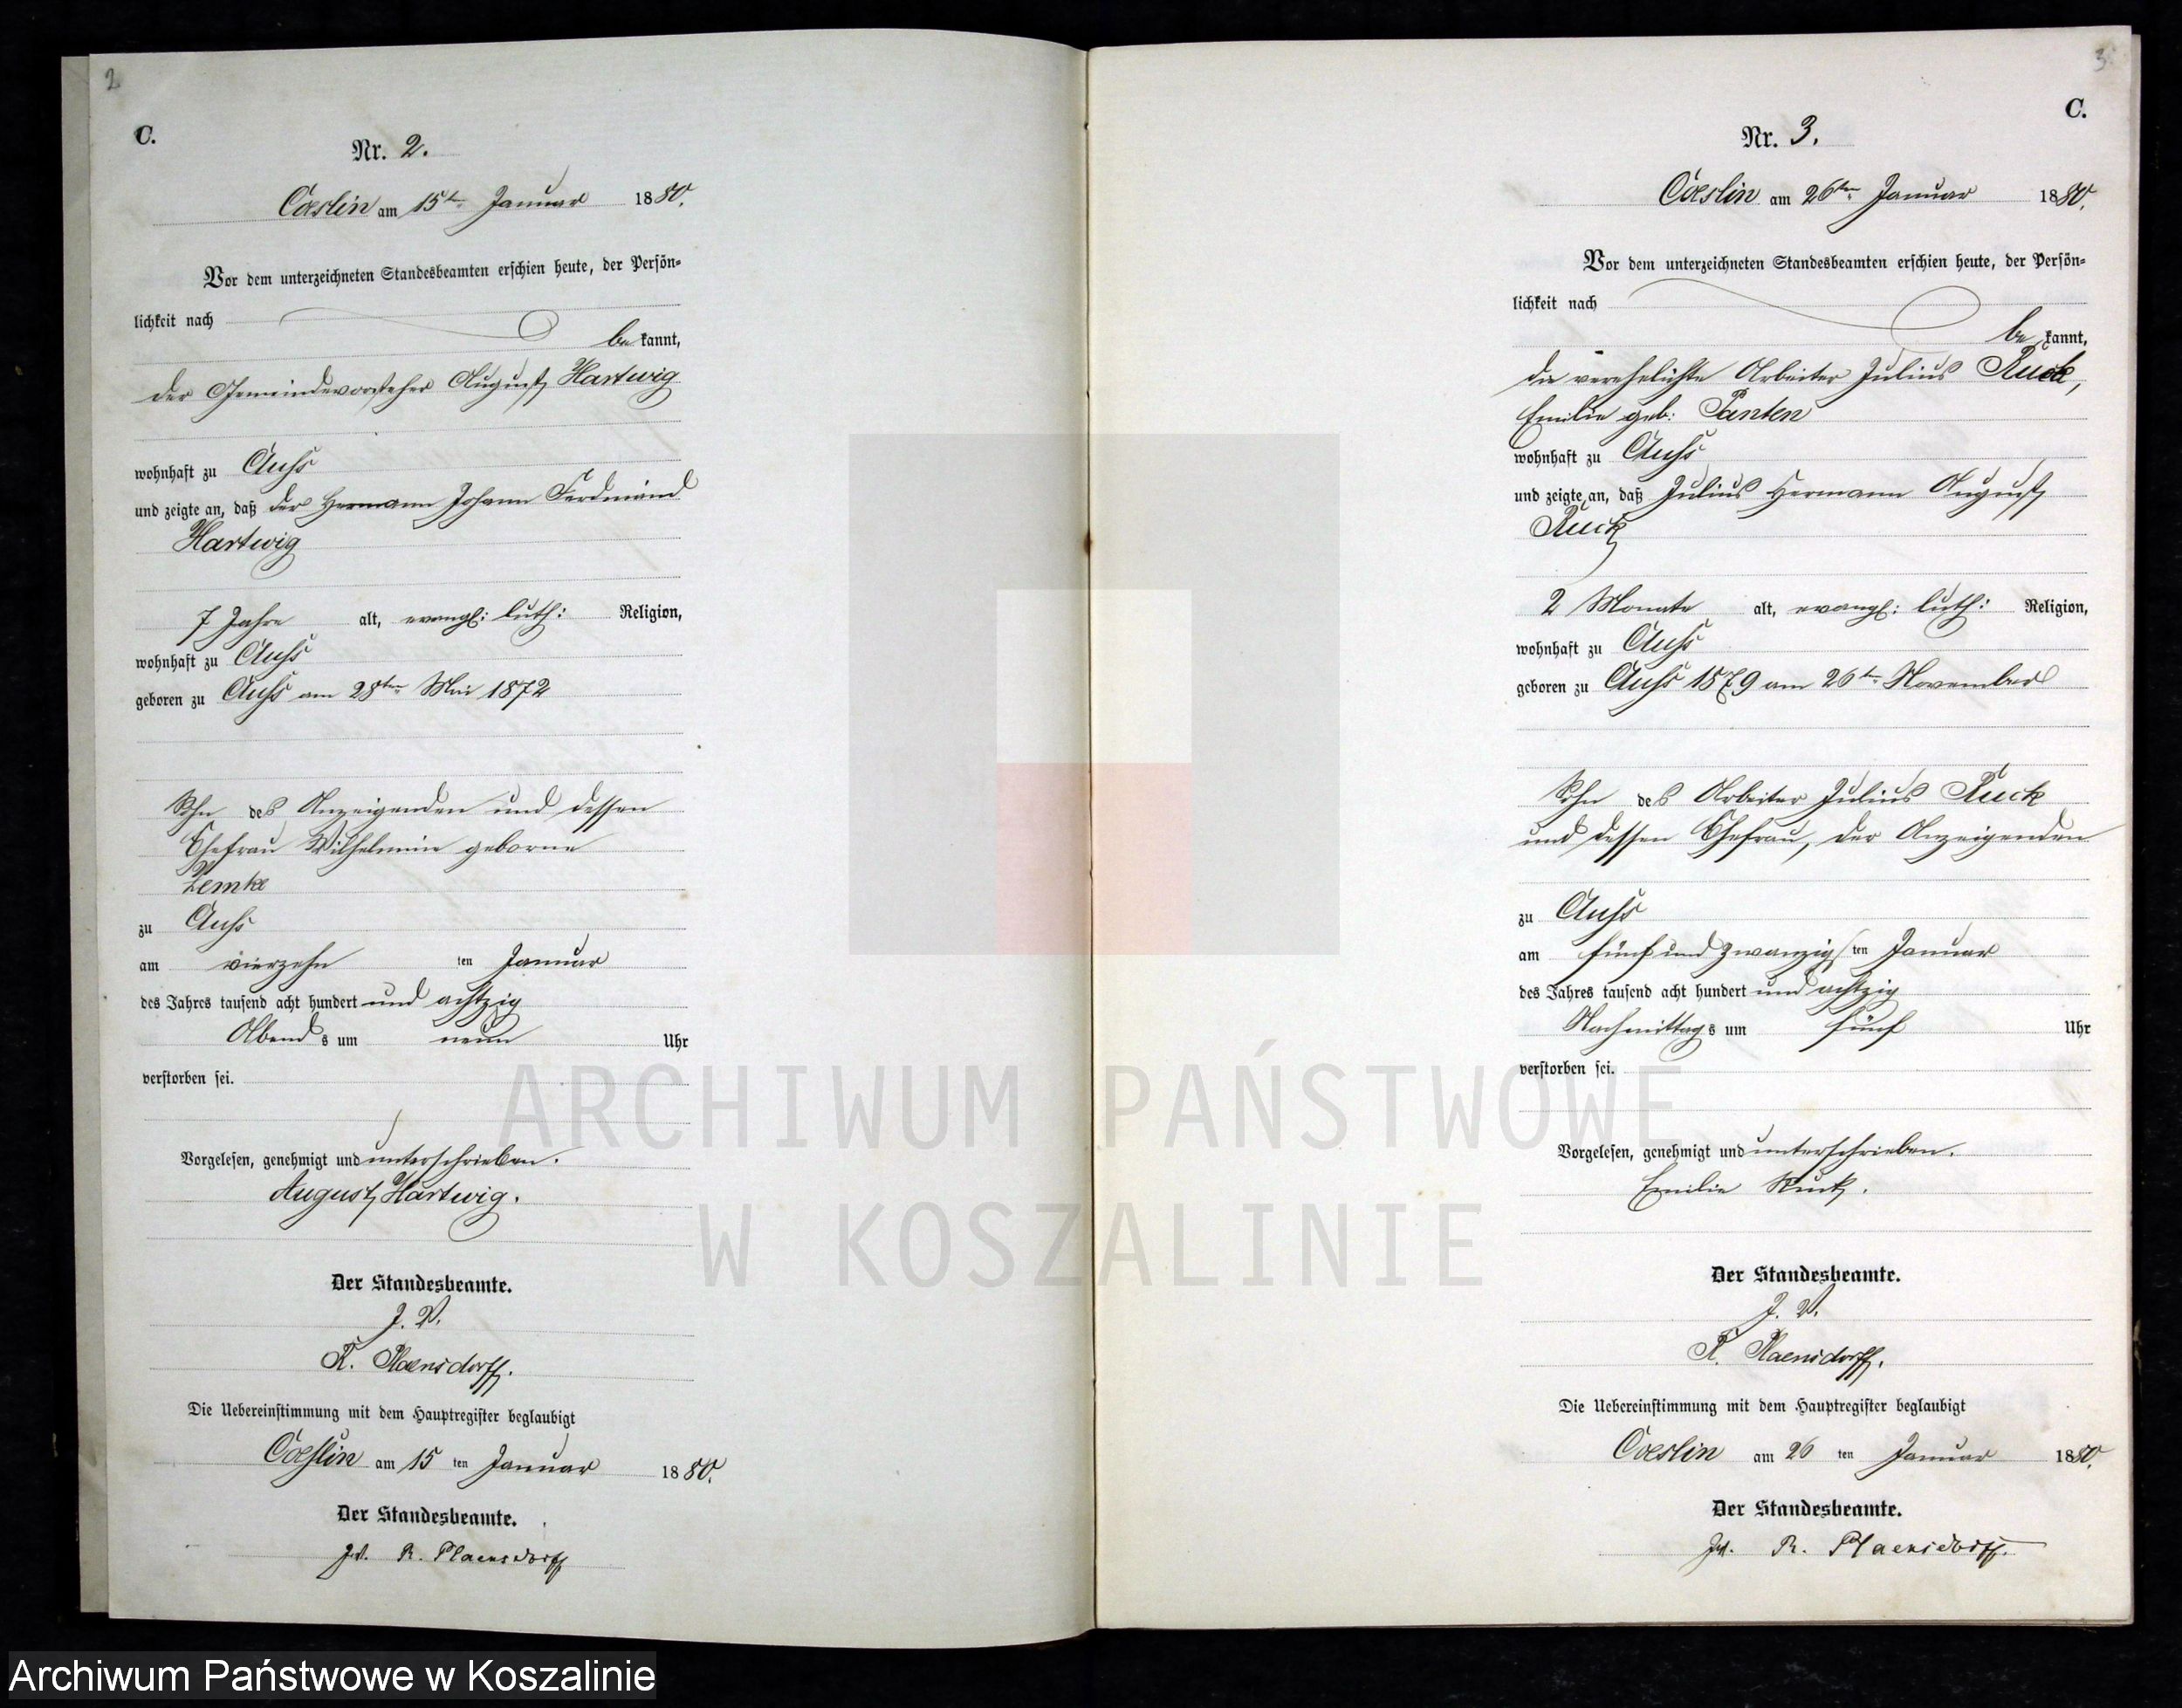 2
C.
Nr. 2.
Coeslin am 15ten Januar 1880.
Vor dem unterzeichneten Standesbeamten erschien heute, der Persön=
lichkeit nach
be kannt,
der Gemeindevorsteher August Hartwig
wohnhaft zu Cuhs
und zeigte an, daß der Hermann Johann Ferdinand
Hartwig
7 Jahre alt, evangl: luth: Religion,
wohnhaft zu Cuhs
geboren zu Cuhs am 28ten Mai 1872
Sohn des Anzeigenden und dessen
Ehefrau Wilhelmine geborne
Lemke
zu Cuhs
am vierzehn ten Januar
des Jahres tausend acht hundert und achtzig
Abend s um neun Uhr
verstorben sei.
Vorgelesen, genehmigt und unterschrieben.
August Hartwig.
Der Standesbeamte.
J. V.
R. Plaensdorff.
Die Uebereinstimmung mit dem Hauptregister beglaubigt
Coeslin am 15 ten Januar 1880.
Der Standesbeamte.
R. Plaensdorff
3
C.
Nr. 3.
Coeslin am 26ten Januar 1880.
Vor dem unterzeichneten Standesbeamten erschien heute, der Persön=
lichkeit nach
be kannt,
die verehelichte Arbeiter Julius Ruck,
Emilie geb: Panten
wohnhaft zu Cuhs
und zeigte an, daß Julius Hermann August
Ruck
2 Monate alt, evangl: luth: Religion,
wohnhaft zu Cuhs
geboren zu Cuhs 1879 am 26ten November
Sohn des Arbeiter Julius Ruck
und dessen Ehefrau, der Anzeigenden
zu Cuhs
am fünf und zwanzigs ten Januar
des Jahres tausend acht hundert und achtzig
Nachmittag s um fünf Uhr
verstorben sei.
Vorgelesen, genehmigt und unterschrieben.
Emilie Ruck.
Der Standesbeamte.
J. V.
R. Plaensdorff.
Die Uebereinstimmung mit dem Hauptregister beglaubigt
Coeslin am 26 ten Januar 1880.
Der Standesbeamte.
R. Plaensdorff.
ARCHIWUM PAŃSTWOWE
W KOSZALINIE
Archiwum Państwowe w Koszalinie